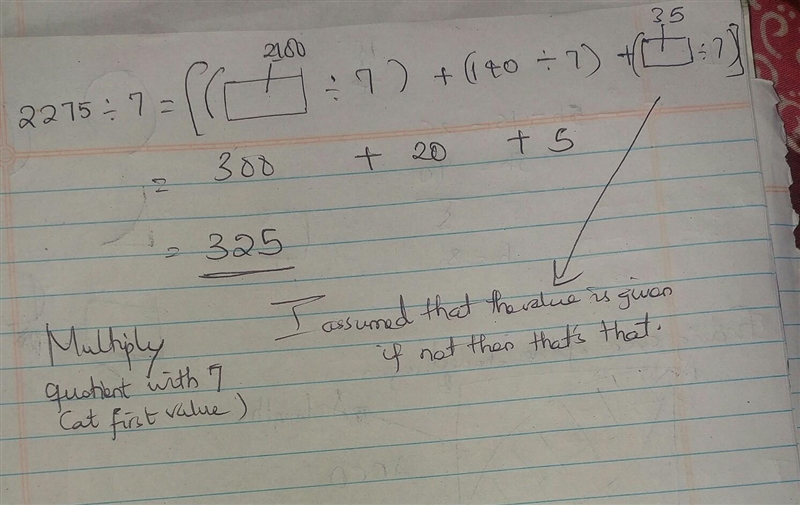 2100
35
2275 ÷ 7 = [( ÷ 7) + (140 ÷ 7) + ( ÷ 7)]
= 300 + 20 + 5
= 325
I assumed that the value is given
if not then that's that.
Multiply
quotient with 7
(at first value)